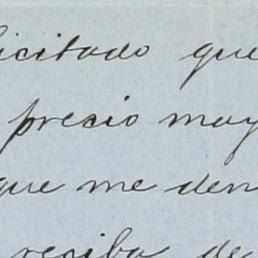 licitado que
precio may
que me den
reciba de